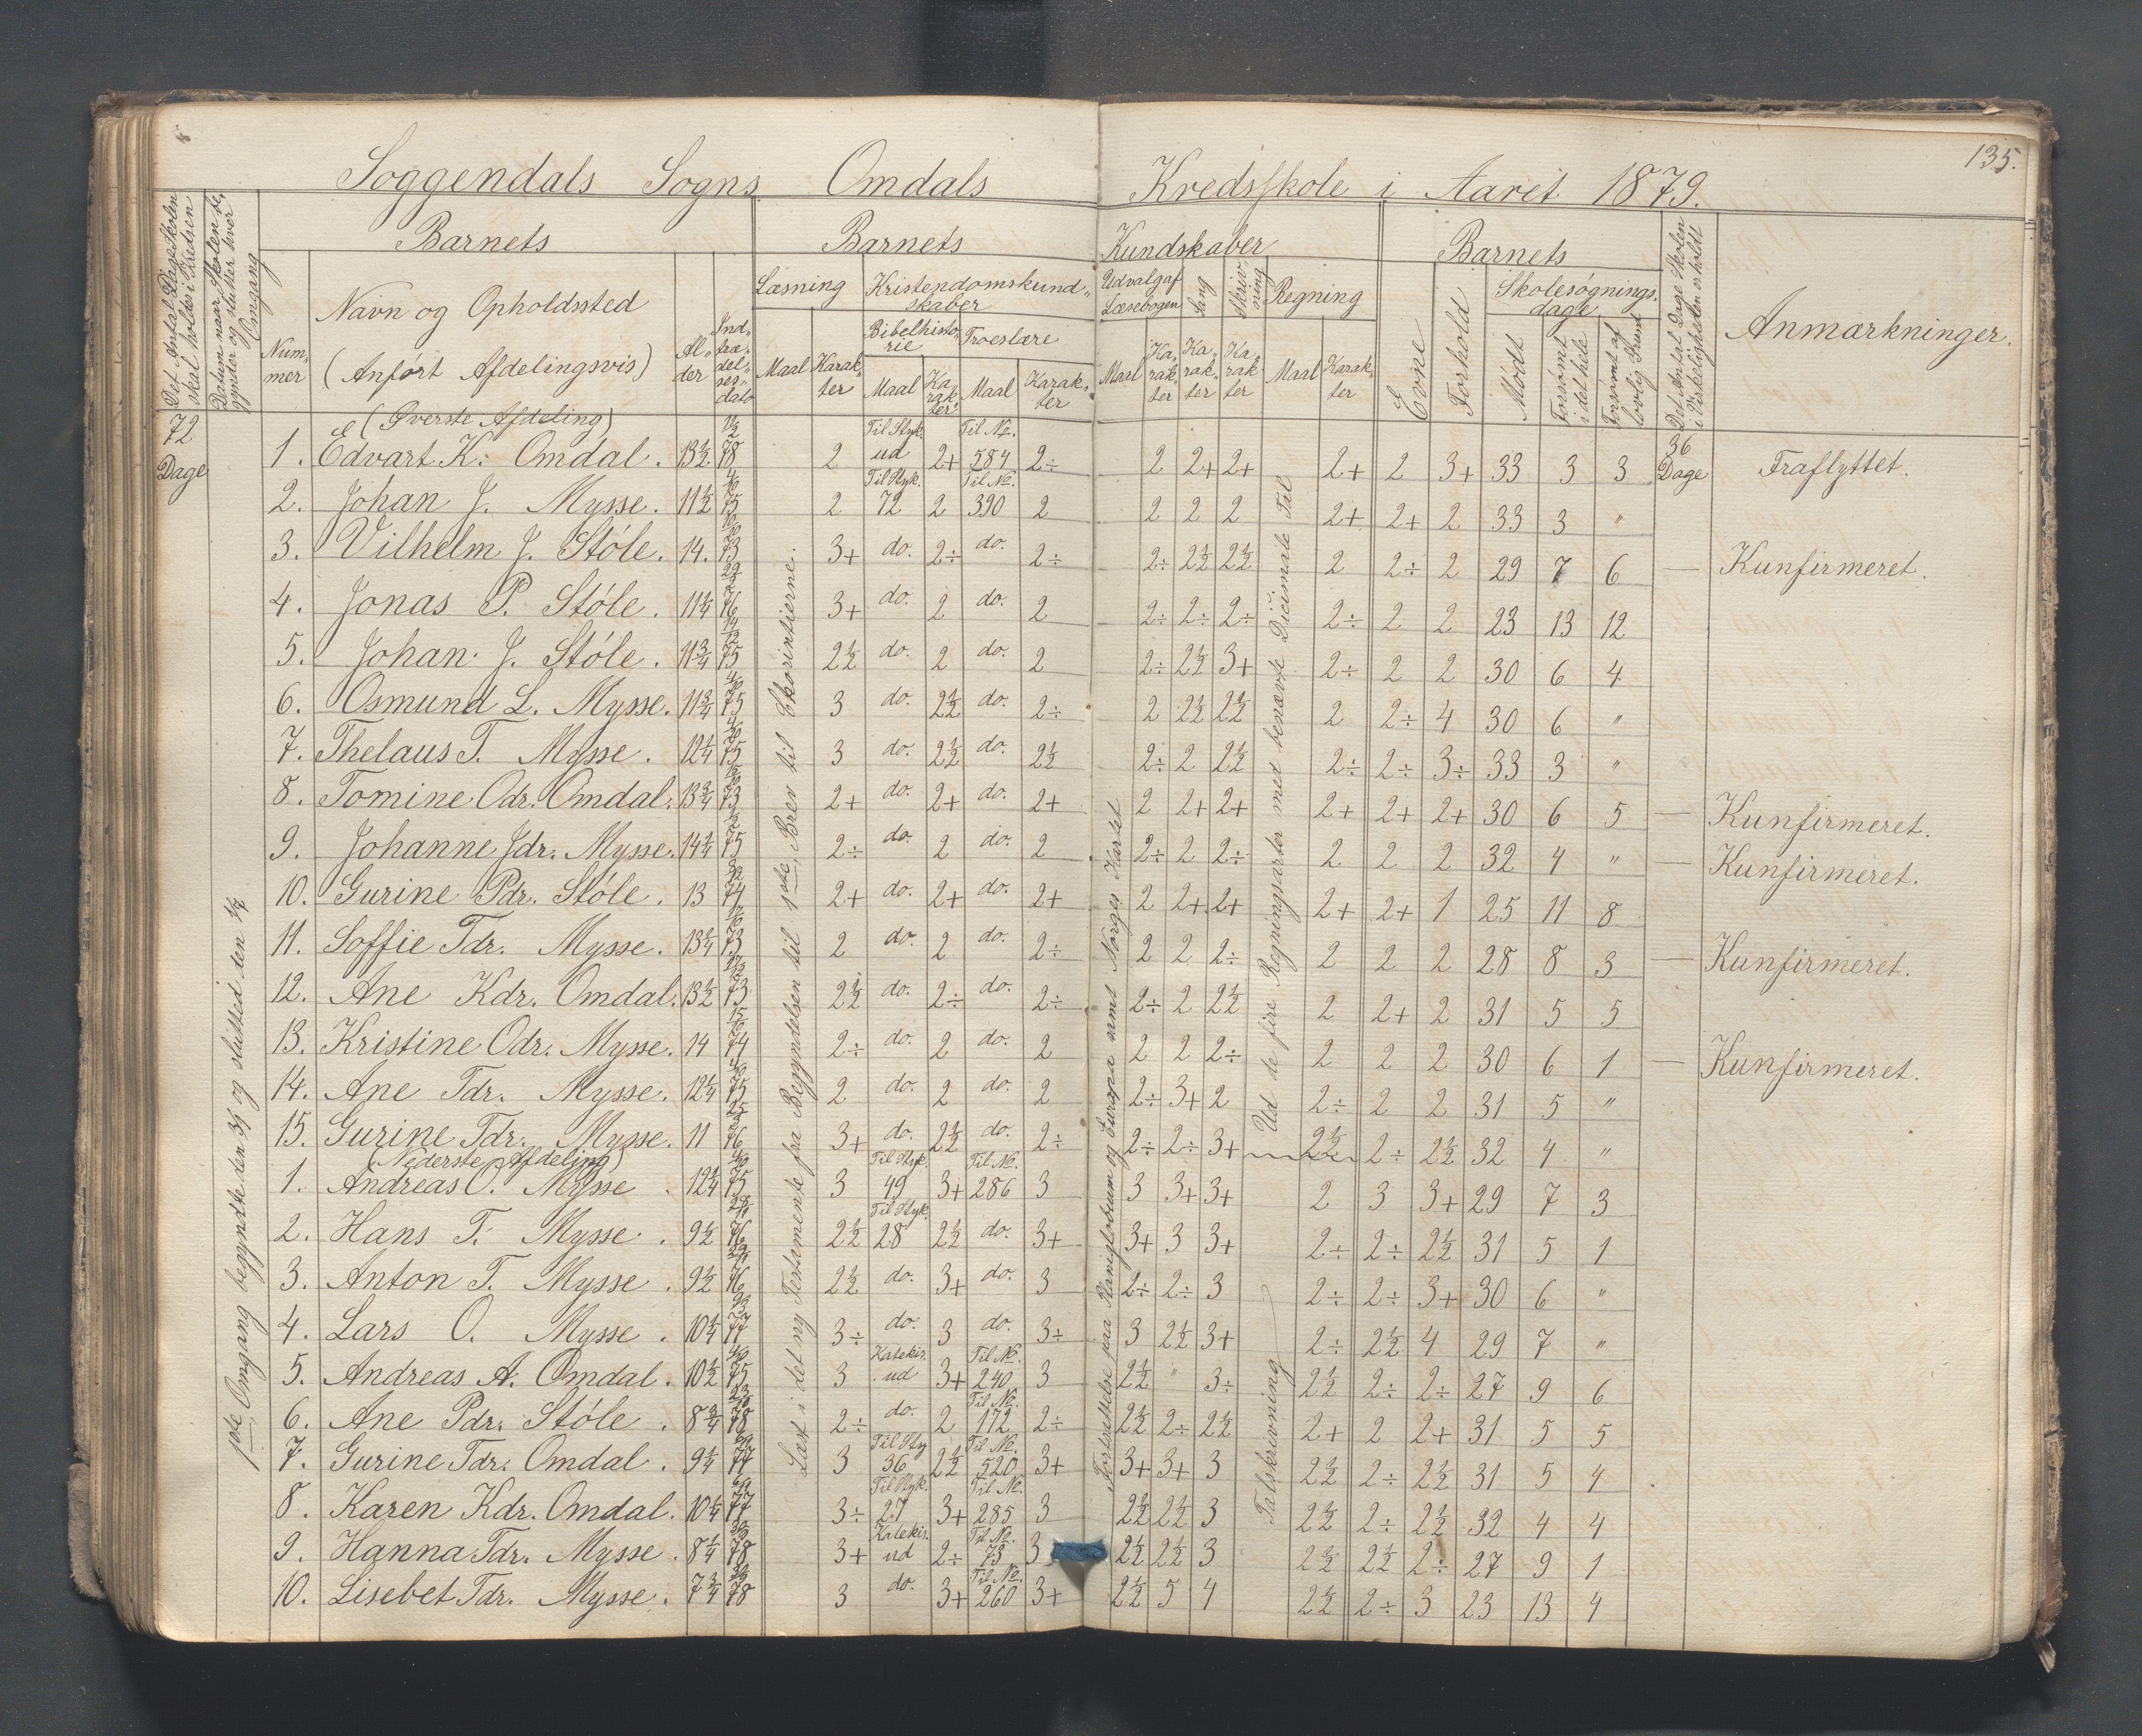 135.
Soggendals Sogns Omdals Kredsskole i Aaret 1879.
Det Antal Dage Skolen skal holdes i Kredsen
Datum naar Skolen begynder og slutter hver Omgang
Barnets
Barnets
Kundskaber
Barnets
Det Antal Dage Skolen i Virkeligheden er holdt
Anmærkninger.
Num-mer
Navn og Opholdssted
(Anført Afdelingsvis)
Al-der
Ind-træ-del-ses-dato
Læsning
Kristendomskund-skaber
Bibelhisto-rie
Troeslære
Udvalg af Læsebogen
Sang
Skriv-ning
Regning
Evne
Forhold
Skolesøgnings-dage
Mødt
Forsømt i det hele
Forsømt af lovlig Grund
Maal Karak-ter Maal Ka-rak-ter Maal Karak-ter Maal Ka-rak-ter Ka-rak-ter Ka-rak-ter Maal Karak-ter
72 Dage
36 Dage
1ste Omgang begyndte den 3/1 og slutted den 1/7
Læst i det ny Testamente fra Begyndelsen til 1ste Brev til Chorintierne.
Fortsættelse paa Planiglobium og Europa samt Norges Kartet
Ud de fire Regningsarter med benævte Dicimale Tal
Talskrivning
(Øverste Afdeling)
1. Edvart K. Omdal. 13½ 2 Til Styk. ud 2+ Til No. 584 2÷ 2 2+ 2+ 2+ 2 3+ 33 3 3 Fraflyttet.
2. Johan J. Mysse. 11½ 2 Til Styk. 72 2 Til No. 390 2 2 2 2 2+ 2+ 2 33 3 "
3. Vilhelm J. Støle. 14. 3+ do. 2÷ do. 2÷ 2÷ 2½ 2½ 2 2÷ 2 29 7 6 — Kunfirmeret.
4. Jonas P. Støle. 11¼ 3+ do. 2 do. 2 2÷ 2÷ 2÷ 2÷ 2 2 23 13 12
5. Johan J. Støle. 11¾ 2½ do. 2 do. 2 2÷ 2½ 3+ 2÷ 2 2 30 6 4
6. Osmund L. Mysse. 11¾ 3 do. 2½ do. 2÷ 2 2½ 2½ 2 2÷ 4 30 6 "
7. Thelaus T. Mysse. 12¼ 3 do. 2½ do. 2½ 2÷ 2 2½ 2÷ 2÷ 3÷ 33 3 "
8. Tomine Odr. Omdal. 13¾ 2+ do. 2+ do. 2+ 2 2+ 2+ 2+ 2+ 2+ 30 6 5 — Kunfirmeret.
9. Johanne Jdr. Mysse. 14¼ 2÷ do. 2 do. 2 2÷ 2 2÷ 2 2 2 32 4 " — Kunfirmeret.
10. Gurine Pdr. Støle. 13 2+ do. 2+ do. 2+ 2 2+ 2+ 2+ 2+ 1 25 11 8
11. Soffie Tdr. Mysse. 13¼ 2 do. 2 do. 2÷ 2 2 2÷ 2 2 2 28 8 3 — Kunfirmeret.
12. Ane Kdr. Omdal. 13½ 2½ do. 2÷ do. 2÷ 2÷ 2 2½ 2 2+ 2 31 5 5
13. Kristine Odr. Mysse. 14 2÷ do. 2 do. 2 2 2 2÷ 2 2 2 30 6 1 — Kunfirmeret.
14. Ane Tdr. Mysse. 12¼ 2 do. 2 do. 2 2÷ 3+ 2 2÷ 2 2 31 5 "
15. Gurine Tdr. Mysse. 11 3+ do. 2½ do. 2÷ 2÷ 2÷ 3+ 2½ 2÷ 2½ 32 4 "
(Nederste Afdeling)
1. Andreas O. Mysse. 12¼ 3 Til Styk. 49 3+ Til No. 286 3 3 3+ 3+ 2 3 3+ 29 7 3
2. Hans T. Mysse. 9½ 2½ Til Styk. 28 2½ do. 3+ 3+ 3 3+ 2÷ 2÷ 2½ 31 5 1
3. Anton T. Mysse. 9½ 2½ do. 3+ do. 3 2÷ 2÷ 3 2÷ 2÷ 3+ 30 6 "
4. Lars O. Mysse. 10¼ 3÷ do. 3 do. 3÷ 3 2½ 3+ 2÷ 2½ 4 29 7 "
5. Andreas A. Omdal. 10½ 3 Katekis. ud 3+ Til No. 240 3 2½ " 3÷ 2½ 2÷ 2÷ 27 9 6
6. Ane Pdr. Støle. 8¾ 2÷ do. 2 Til No. 172 2÷ 2½ 2÷ 2½ 2+ 2 2+ 31 5 5
7. Gurine Tdr. Omdal. 9¼ 3 Til Sty 36 2½ Til No. 520 3+ 3+ 3+ 3 2½ 2÷ 2½ 31 5 4
8. Karen Kdr. Omdal. 10¼ 3÷ Til Styk. 27 3+ Til No. 285 3 2½ 2½ 3 2½ 2÷ 2½ 32 4 4
9. Hanna Tdr. Mysse. 8¼ 3+ Katekis. ud 2÷ Til No. 73 3 2½ 2½ 3 2½ 2½ 2÷ 27 9 1
10. Lisebet Tdr. Mysse. 7¾ 3 do. 3+ Til No. 260 3+ 2½ 5 4 2½ 2÷ 3 23 13 4